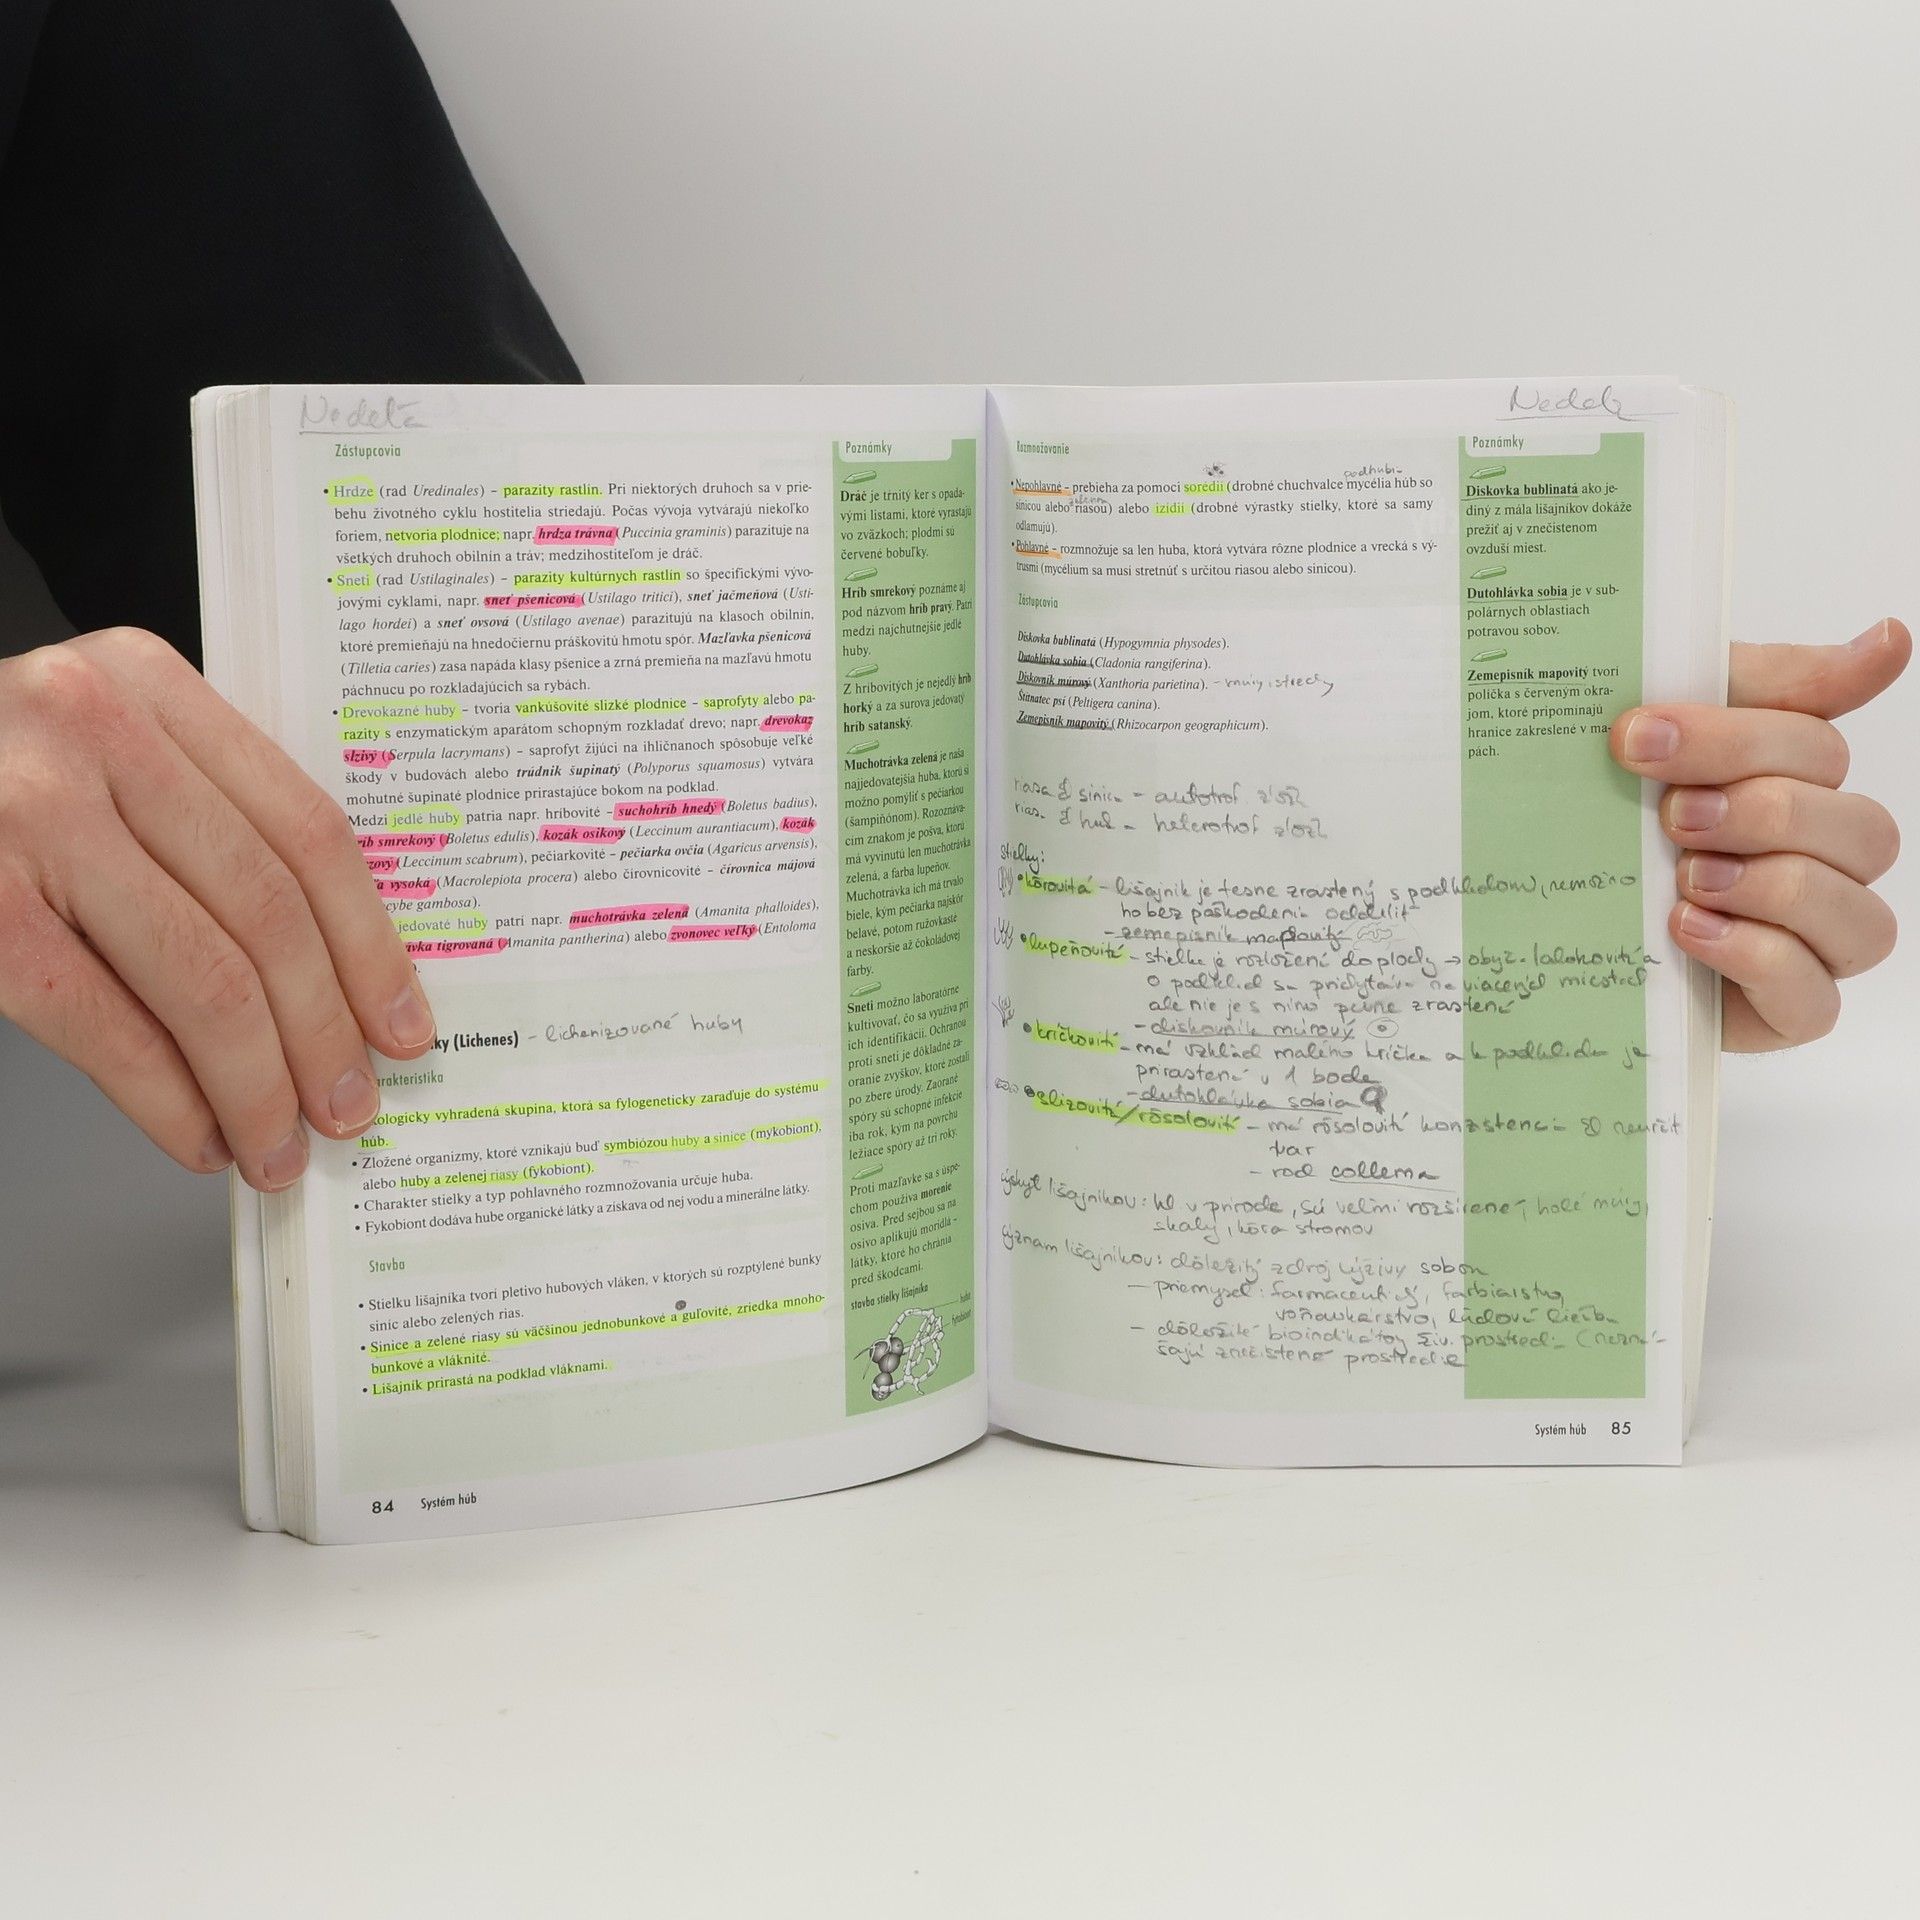 Nedeľa
Zástupcovia
• Hrdze (rad Uredinales) – parazity rastlín. Pri niektorých druhoch sa v prie-
behu životného cyklu hostitelia striedajú. Počas vývoja vytvárajú niekoľko
foriem, netvoria plodnice; napr. hrdza trávna (Puccinia graminis) parazituje na
všetkých druhoch obilnín a tráv; medzihostiteľom je dráč.
• Sneti (rad Ustilaginales) – parazity kultúrnych rastlín so špecifickými vývo-
jovými cyklami, napr. sneť pšenicová (Ustilago tritici), sneť jačmeňová (Usti-
lago hordei) a sneť ovsová (Ustilago avenae) parazitujú na klasoch obilnín,
ktoré premieňajú na hnedočiernu práškovitú hmotu spór. Mazľavka pšenicová
(Tilletia caries) zasa napáda klasy pšenice a zrná premieňa na mazľavú hmotu
páchnucu po rozkladajúcich sa rybách.
• Drevokazné huby – tvoria vankúšovité slizké plodnice – saprofyty alebo pa-
razity s enzymatickým aparátom schopným rozkladať drevo; napr. drevokaz
slzivý (Serpula lacrymans) – saprofyt žijúci na ihličnanoch spôsobuje veľké
škody v budovách alebo trúdnik šupinatý (Polyporus squamosus) vytvára
mohutné šupinaté plodnice prirastajúce bokom na podklad.
Medzi jedlé huby patria napr. hríbovité – suchohríb hnedý (Boletus badius),
ríb smrekový (Boletus edulis), kozák osikový (Leccinum aurantiacum), kozák
zový (Leccinum scabrum), pečiarkovité – pečiarka ovčia (Agaricus arvensis),
a vysoká (Macrolepiota procera) alebo čírovnicovité – čírovnica májová
cybe gambosa).
jedovaté huby patrí napr. muchotrávka zelená (Amanita phalloides),
ávka tigrovaná (Amanita pantherina) alebo zvonovec veľký (Entoloma
).
ky (Lichenes) – lichenizované huby
arakteristika
kologicky vyhradená skupina, ktorá sa fylogeneticky zaraďuje do systému
húb.
• Zložené organizmy, ktoré vznikajú buď symbiózou huby a sinice (mykobiont),
alebo huby a zelenej riasy (fykobiont).
• Charakter stielky a typ pohlavného rozmnožovania určuje huba.
• Fykobiont dodáva hube organické látky a získava od nej vodu a minerálne látky.
Stavba
• Stielku lišajníka tvorí pletivo hubových vláken, v ktorých sú rozptýlené bunky
siníc alebo zelených rias.
• Sinice a zelené riasy sú väčšinou jednobunkové a guľovité, zriedka mnoho-
bunkové a vláknité.
• Lišajník prirastá na podklad vláknami.
84 Systém húb
Poznámky
Dráč je tŕnitý ker s opada-
vými listami, ktoré vyrastajú
vo zväzkoch; plodmi sú
červené bobuľky.
Hríb smrekový poznáme aj
pod názvom hríb pravý. Patrí
medzi najchutnejšie jedlé
huby.
Z hríbovitých je nejedlý hríb
horký a za surova jedovatý
hríb satanský.
Muchotrávka zelená je naša
najjedovatejšia huba, ktorú si
možno pomýliť s pečiarkou
(šampiňónom). Rozoznáva-
cím znakom je pošva, ktorú
má vyvinutú len muchotrávka
zelená, a farba lupeňov.
Muchotrávka ich má trvalo
biele, kým pečiarka najskôr
belavé, potom ružovkasté
a neskoršie až čokoládovej
farby.
Sneti možno laboratórne
kultivovať, čo sa využíva pri
ich identifikácii. Ochranou
proti sneti je dôkladné za-
oranie zvyškov, ktoré zostali
po zbere úrody. Zaorané
spóry sú schopné infekcie
iba rok, kým na povrchu
ležiace spóry až tri roky.
Proti mazľavke sa s úspe-
chom používa morenie
osiva. Pred sejbou sa na
osivo aplikujú moridlá –
látky, ktoré ho chránia
pred škodcami.
stavba stielky lišajníka
huba
fykobiont
Nedeľa
Rozmnožovanie
podhubi-
• Nepohlavné – prebieha za pomoci sorédií (drobné chuchvalce mycélia húb so
zelenou
sinicou alebo riasou) alebo izídií (drobné výrastky stielky, ktoré sa samy
odlamujú).
• Pohlavné – rozmnožuje sa len huba, ktorá vytvára rôzne plodnice a vrecká s vý-
trusmi (mycélium sa musí stretnúť s určitou riasou alebo sinicou).
Zástupcovia
Diskovka bublinatá (Hypogymnia physodes).
Dutohlávka sobia (Cladonia rangiferina).
Diskovník múrový (Xanthoria parietina). – múry, strechy
Štítnatec psí (Peltigera canina).
Zemepisník mapovitý (Rhizocarpon geographicum).
riasa sinic – autotrof
hub – heterotrof
stielky:
• kôrovitá – lišajník je tesne zrastený s podkladom, nemožno
ho bez poškodenia oddeliť
– zemepisník mapovitý
• lupeňovitá – stielka je rozložená do plochy → obyč. laločkovitá a
o podklad sa pridŕžava na viacerých miestach
ale nie je s ním pevne zrastená
– diskovník múrový
• kríčkovitá – má vzhľad malého kríčka a k podkladu je
prirastená v 1 bode
– dutohlávka sobia
• slizovitá/rôsolovitá – má rôsolovitú konzistenciu neurčit
tvar
– rod collema
výskyt lišajníkov: v prírode, sú veľmi rozšírené, holé múry,
skaly, kôra stromov
význam lišajníkov: dôležitý zdroj výživy sobov
– priemysel: farmaceutický, farbiarstvo,
voňavkárstvo, ľudové
– dôležité bioindikátory živ. prostredi- (nezná-
šajú znečistené prostredie
Poznámky
Diskovka bublinatá ako je-
diný z mála lišajníkov dokáže
prežiť aj v znečistenom
ovzduší miest.
Dutohlávka sobia je v sub-
polárnych oblastiach
potravou sobov.
Zemepisník mapovitý tvorí
políčka s červeným okra-
jom, ktoré pripomínajú
hranice zakreslené v ma-
pách.
Systém húb 85